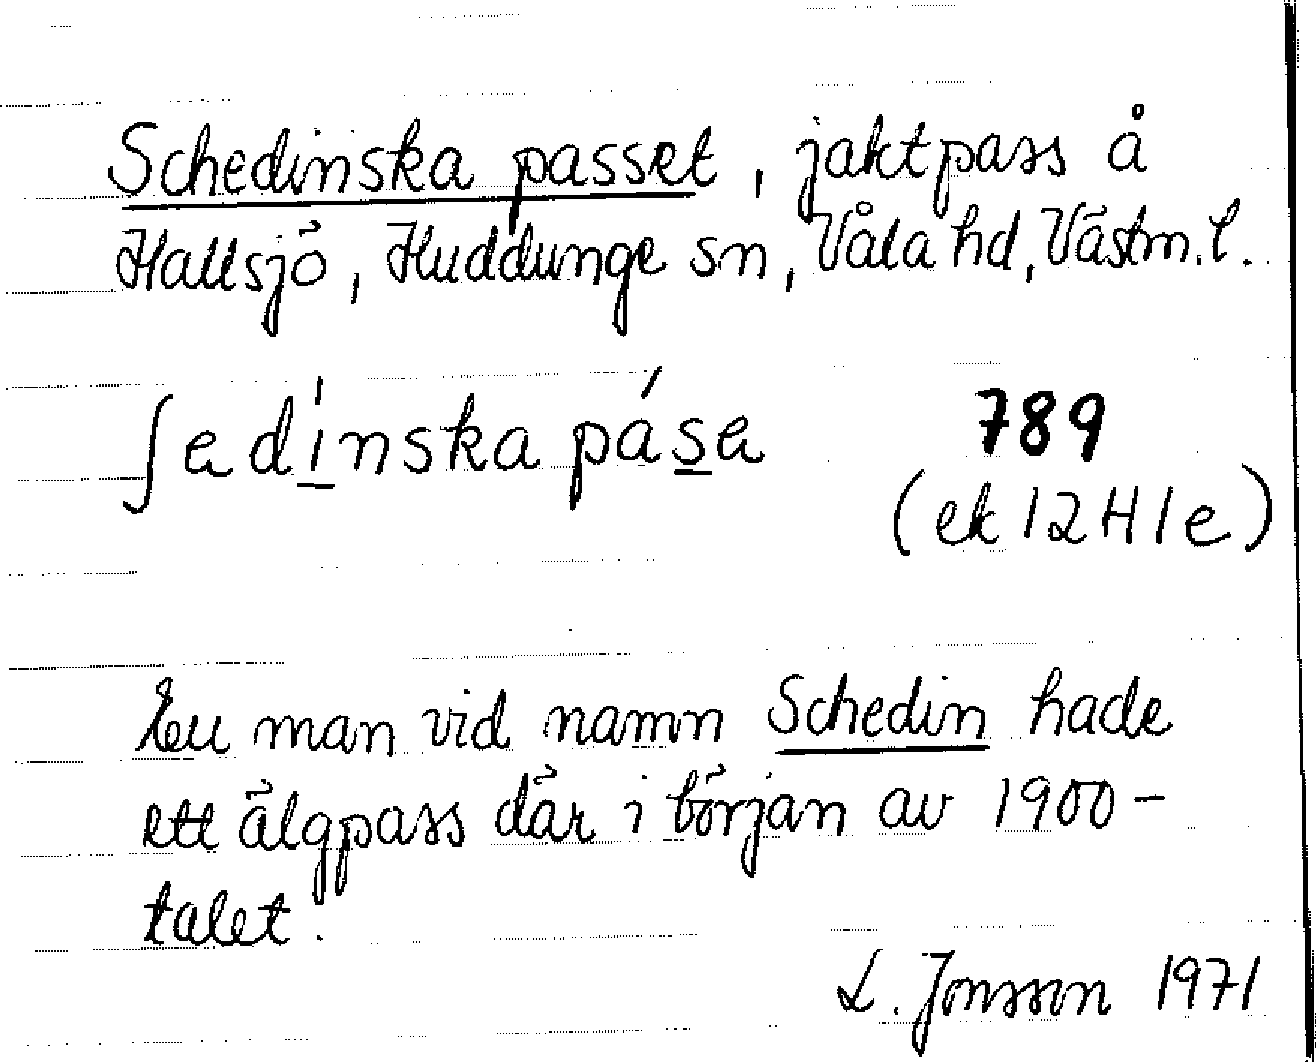 Schedinska passet, jaktpass å
Hallsjö, Huddunge sn, Våla hd, Västm. l.
ʃedí̲nska pás̲a
789
(ek 12H1e)
En man vid namn Schedin hade
ett älgpass där i början av 1900-
talet.
L. Jonsson 1971